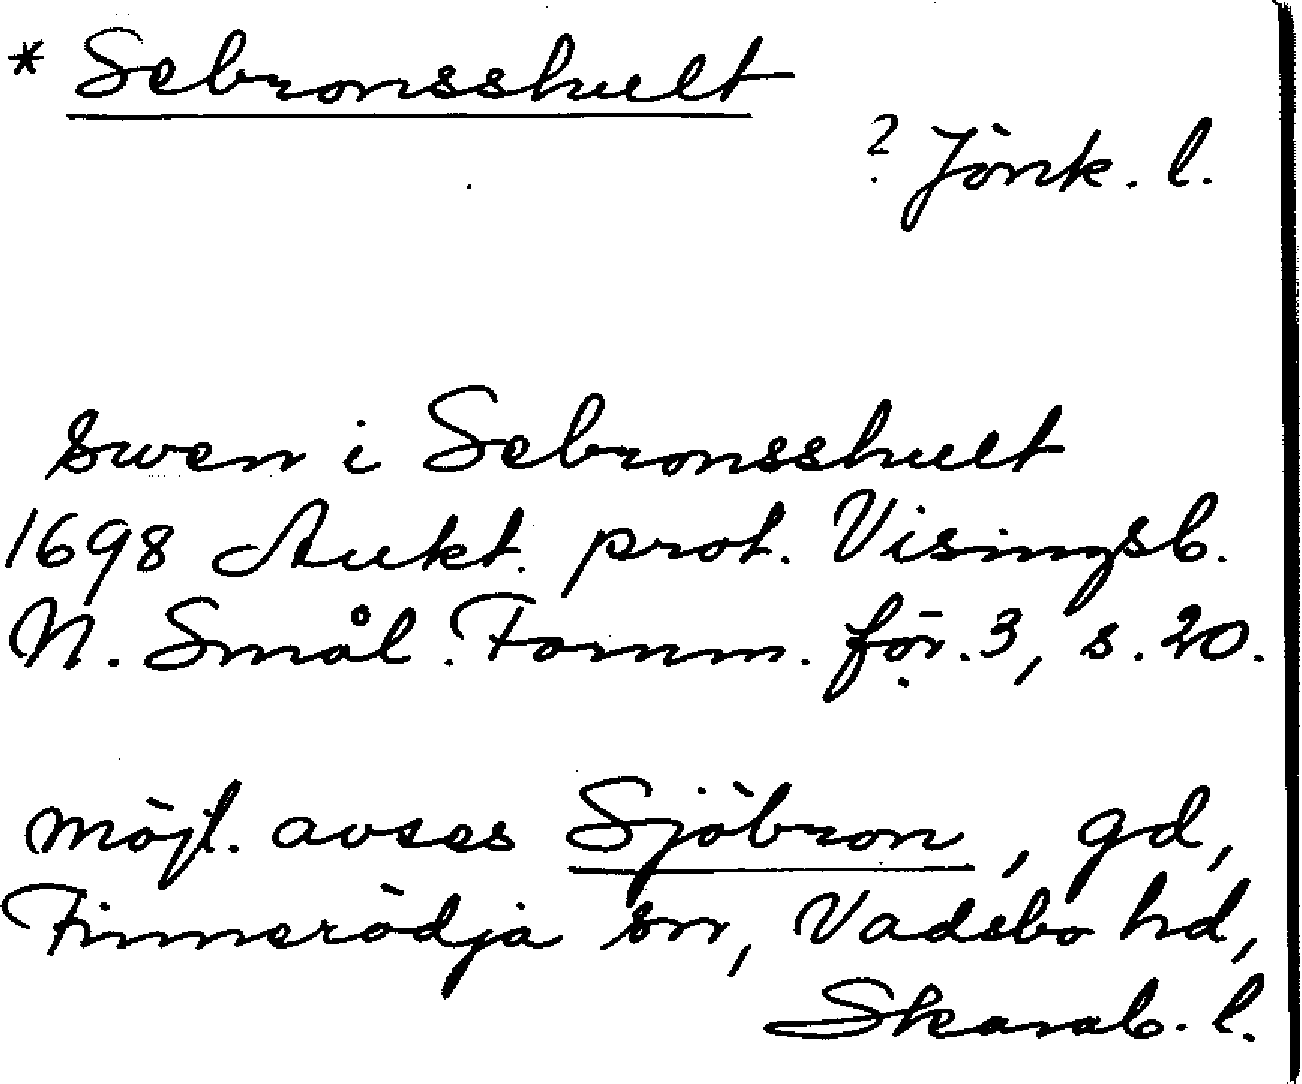 * Sebronsshult
? Jönk. l.
Swen i Sebronsshult
1698 Aukt. prot. Visingsb.
N. Smål. Fornm. för. 3, s. 20.
möjl. avses Sjöbron, gd,
Finnerödja sn, Vadsbo hd,
Skarab. l.